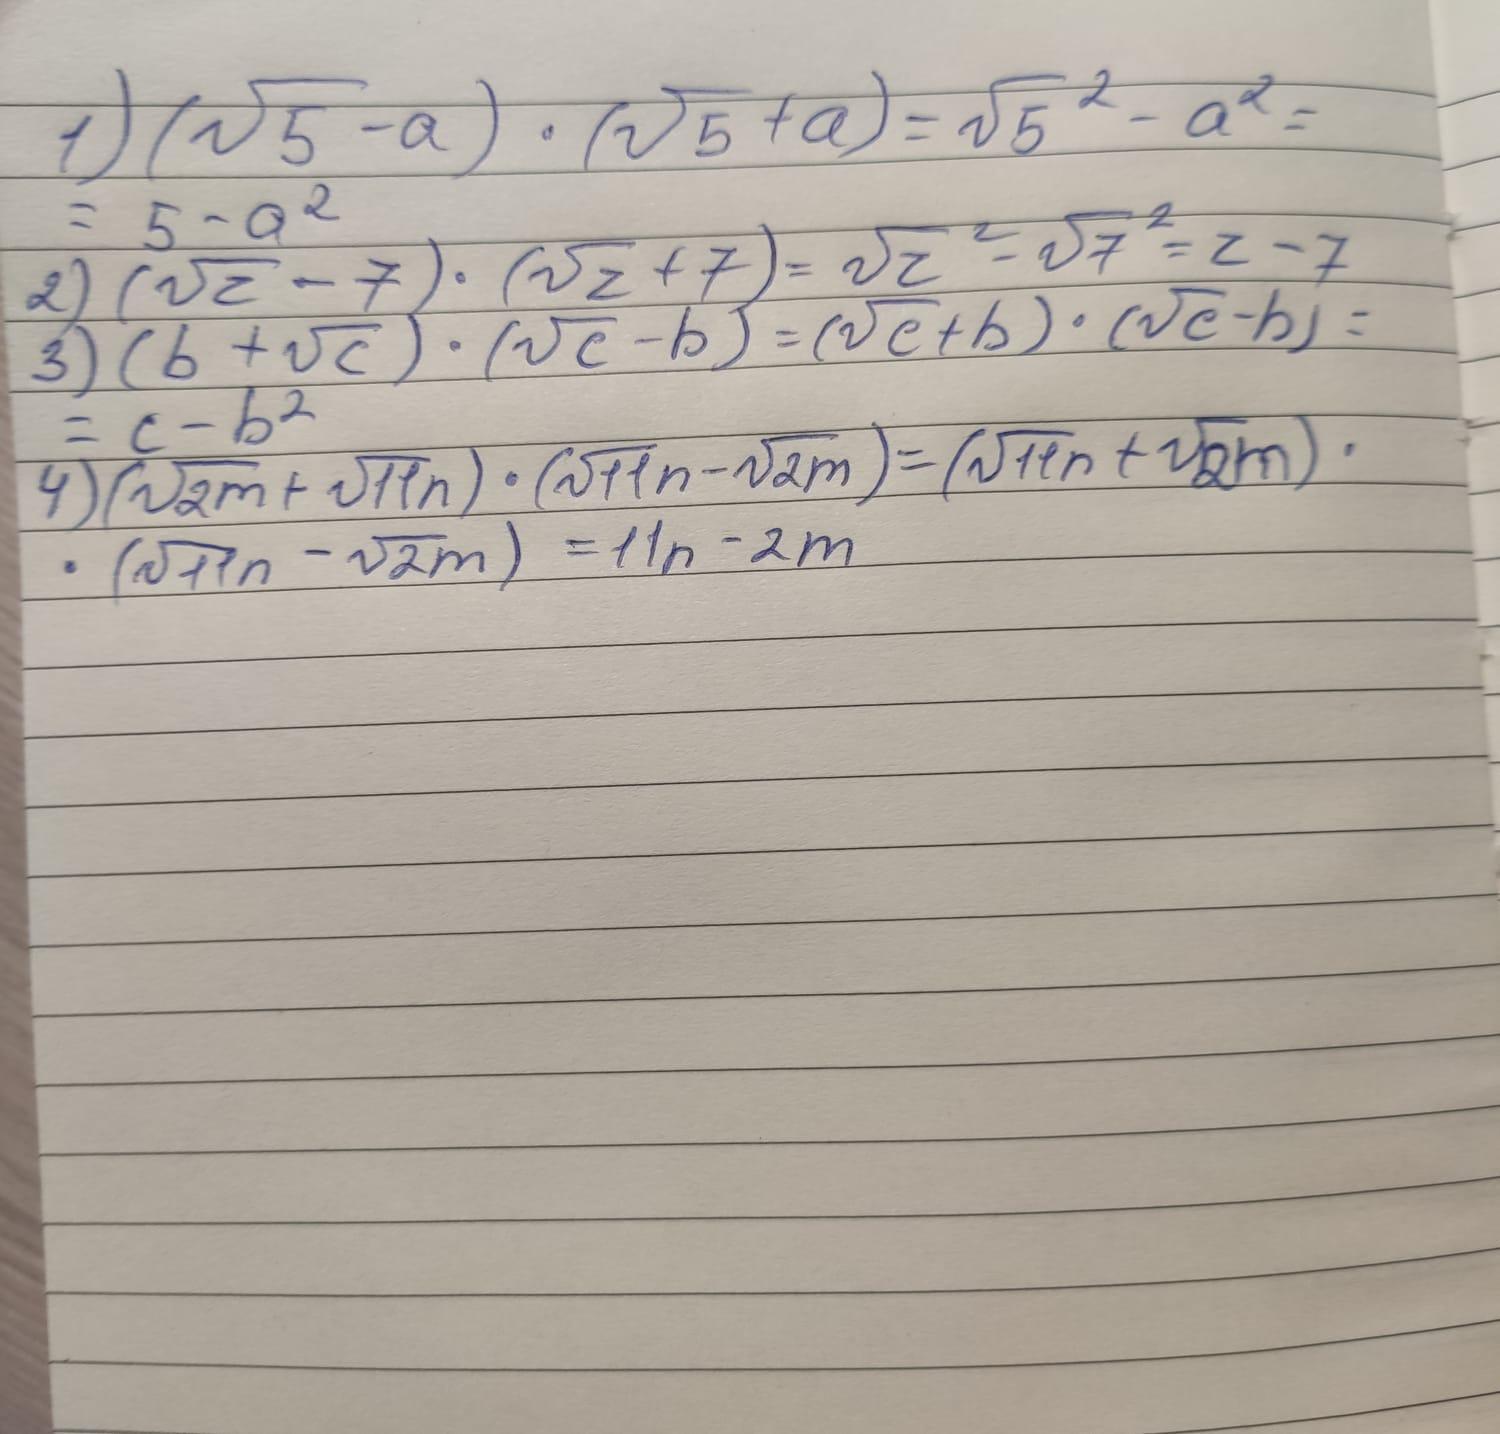 1) (√5 - a) · (√5 + a) = √5² - a² =
= 5 - a²
2) (√z - 7) · (√z + 7) = √z² - √7² = z - 7
3) (b + √c) · (√c - b) = (√c + b) · (√c - b) =
= c - b²
4) (√2m + √11n) · (√11n - √2m) = (√11n + √2m) ·
· (√11n - √2m) = 11n - 2m